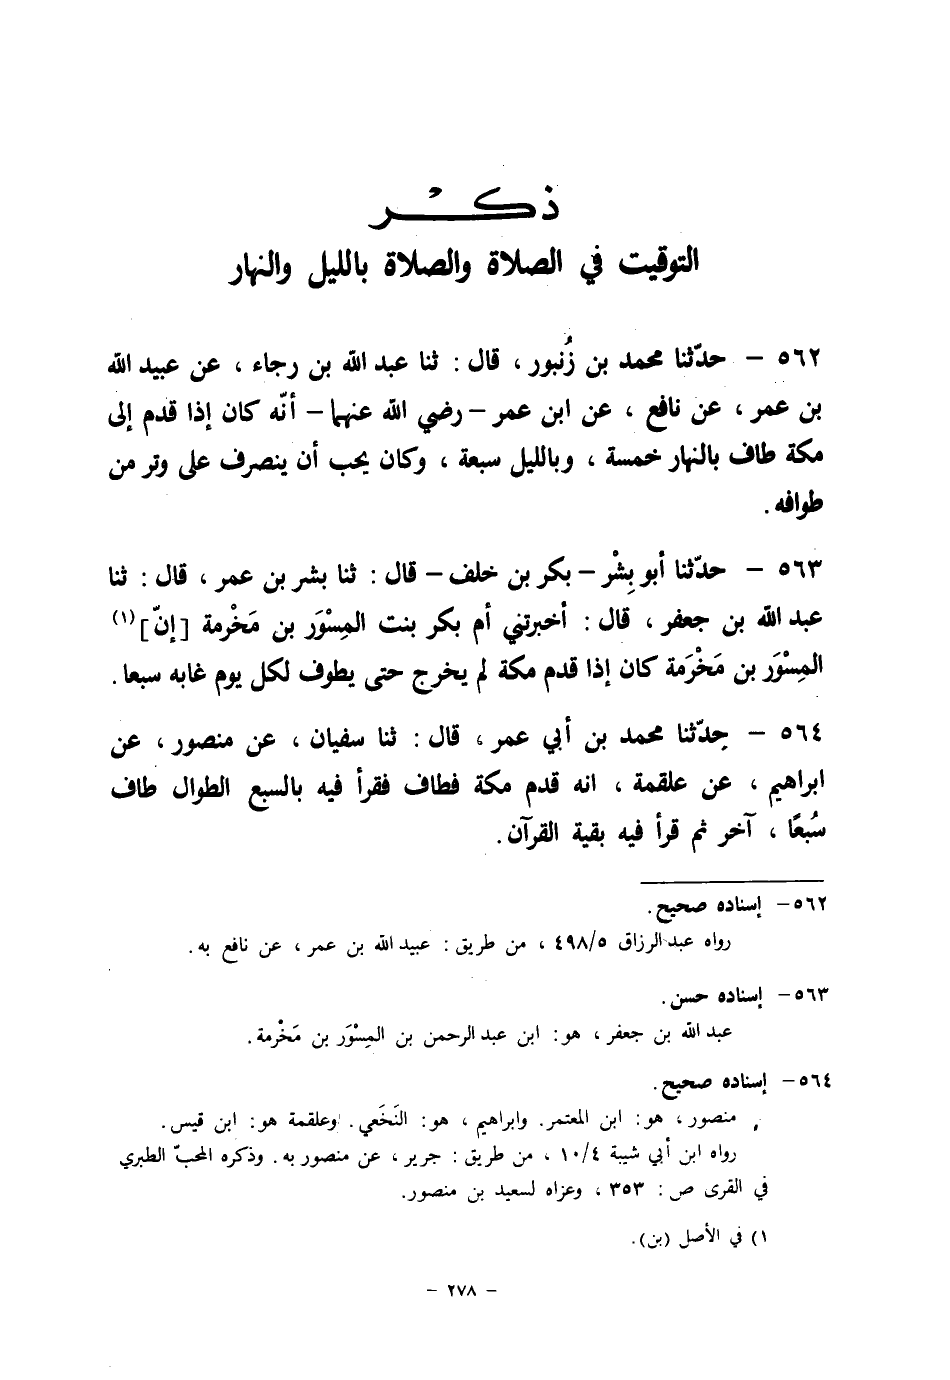 ذكر
التوقيت في الصلاة والصلاة بالليل والنهار
٥٦٢ – حدّثنا محمد بن زُنبور ، قال : ثنا عبد الله بن رجاء ، عن عبيد الله
بن عمر ، عن نافع ، عن ابن عمر – رضي الله عنهما – أنّه كان إذا قدم إلى
مكة طاف بالنهار خمسة ، وبالليل سبعة ، وكان يحب أن ينصرف على وتر من
طوافه .
٥٦٣ – حدّثنا أبو بِشْر – بكر بن خلف – قال : ثنا بشر بن عمر ، قال : ثنا
عبد الله بن جعفر ، قال : أخبرتني أم بكر بنت المِسْوَر بن مَخْرمة [إنّ](١)
المِسْوَر بن مَخْرَمة كان إذا قدم مكة لم يخرج حتى يطوف لكل يوم غابه سبعا .
٥٦٤ – حدّثنا محمد بن أبي عمر ، قال : ثنا سفيان ، عن منصور ، عن
ابراهيم ، عن علقمة ، انه قدم مكة فطاف فقرأ فيه بالسبع الطوال طاف
سُبعًا ، آخر ثم قرأ فيه بقية القرآن .
٥٦٢– إسناده صحيح .
رواه عبد الرزاق ٤٩٨/٥ ، من طريق : عبيد الله بن عمر ، عن نافع به .
٥٦٣– إسناده حسن .
عبد الله بن جعفر ، هو : ابن عبد الرحمن بن المِسْوَر بن مَخْرمة .
٥٦٤– إسناده صحيح .
منصور ، هو : ابن المعتمر . وابراهيم ، هو : النَخَعي . وعلقمة هو : ابن قيس .
رواه ابن أبي شيبة ١٠/٤ ، من طريق : جرير ، عن منصور به . وذكره المحبّ الطبري
في القرى ص : ٣٥٣ ، وعزاه لسعيد بن منصور .
١) في الأصل (بن) .
– ٢٧٨ –